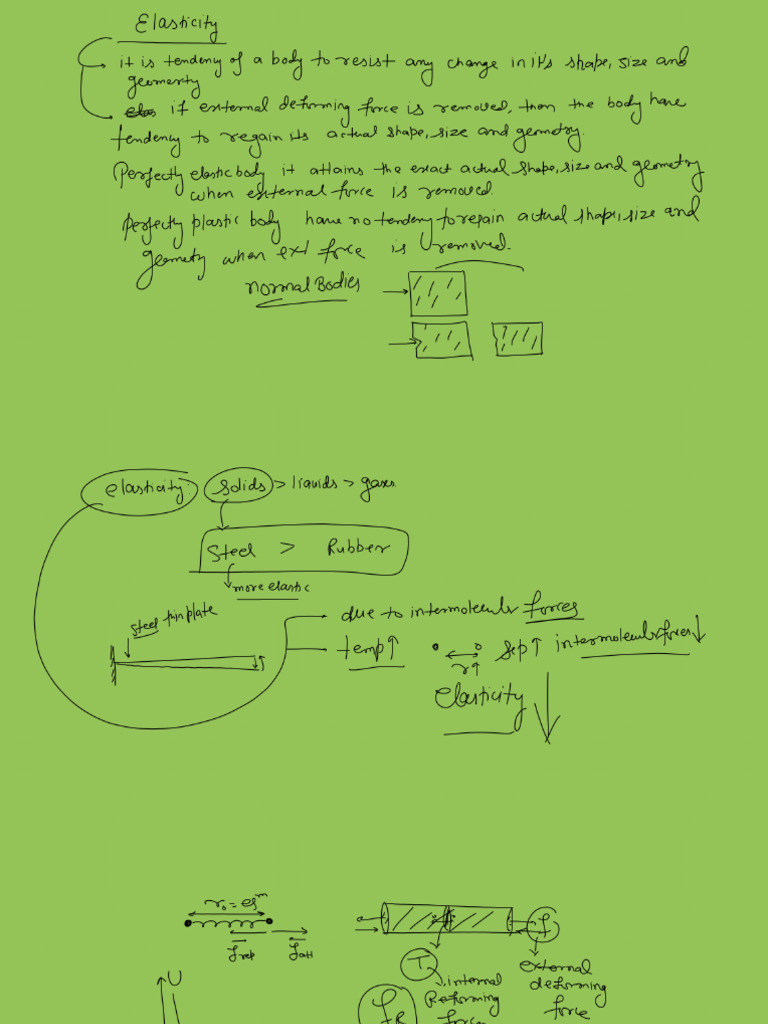 Elasticity
it is tendeny of a body to resist any change in it's shape, size and
geomenty
if external deforming force is removed, then the body have
tendency to regain its actual shape, size and geometry.
Perfectly elastic body it attains the exact actual shape, size and geometry
when external force is removed
perfectly plastic body have no tendeny to regain actual shape, size and
geomety when ext force is removed.
normal Bodies
elasticity: solids > liquids > gases
Steel > Rubber
more elastic
steel thin plate
due to intermolecular forces
temp↑ r↑ Sep↑ intermolecular forces↓
Elasticity ↓
r₀ = eqᵐ
Frep Fatt
U
T f
internal
Reforming
force
external
deforming
force
fR